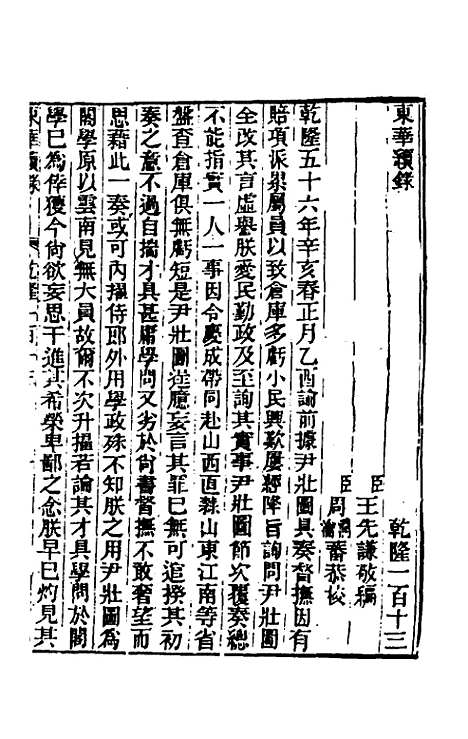 東華續錄　乾隆一百十三
臣王先謙敬編
臣周潤蕃周瀹蕃恭校
乾隆五十六年辛亥春正月乙酉諭前據尹壯圖具奏督撫因有
賠項派累屬員以致倉庫多虧小民興歎屢經降旨詢問尹壯圖
全改其言虛譽朕愛民勤政及至詢其實事尹壯圖節次覆奏總
不能指實一人一事因令慶成帶同赴山西直隸山東江南等省
盤查倉庫俱無虧短是尹壯圖逞臆妄言其罪已無可逭揆其初
奏之意不過自揣才具甚庸學問又劣於尙書督撫不敢奢望而
思藉此一奏或可內擢侍郎外用學政殊不知朕之用尹壯圖為
閣學原以雲南見無大員故爾不次升擢若論其才具學問於閣
學已為倖獲今尙欲妄思干進其希榮卑鄙之念朕早已灼見其
東華續錄　乾隆一百十三